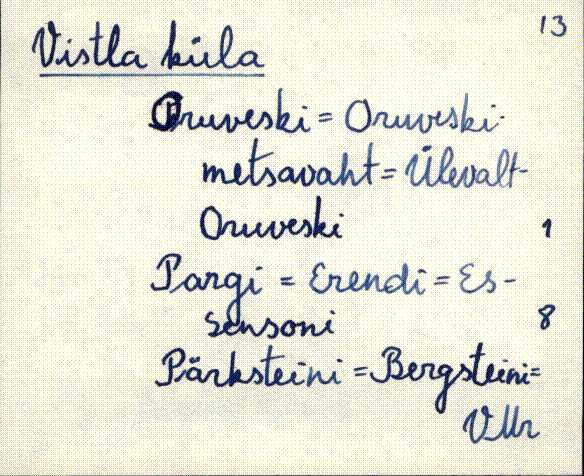 13
Vistla küla
Oruveski = Oruveski-
metsavaht = Ülevalt-
Oruveski 1
Pargi = Erendi = Es-
sensoni 8
Pärksteini = Bergsteini =
VMr